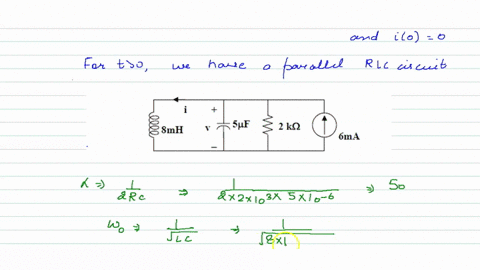 and i(0) = 0
For t>0, we have a parallel RLC circuit
i + 8mH v 5μF 2 kΩ 6mA −
α ⇒ 1/2RC ⇒ 1/2×2×10³×5×10-6 ⇒ 50
ω₀ ⇒ 1/√LC ⇒ 1/√8×1